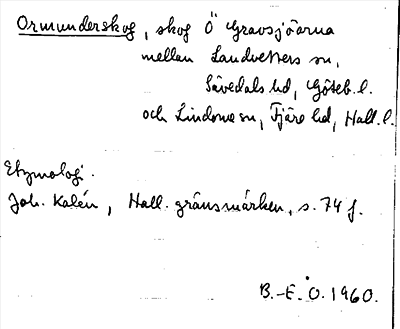 Ormunderskog, skog Ö Gravsjöarna
mellan Landvetters sn,
Sävedals hd, Göteb. l.
och Lindome sn, Fjäre hd, Hall. l.
Etymologi.
Joh. Kalén, Hall. gränsmärken, s. 74 f.
B.-E. Ö. 1960.